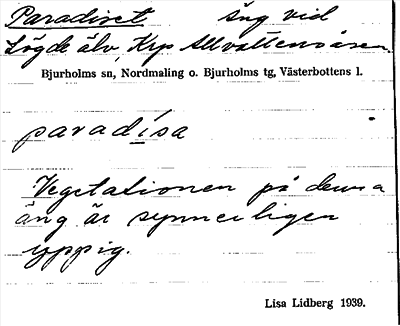 Paradiset äng vid
Lögde älv, Krp Allvattenåsen
Bjurholms sn, Nordmaling o. Bjurholms tg, Västerbottens l.
paradísa
Vegetationen på denna
äng är synnerligen
yppig.
Lisa Lidberg 1939.